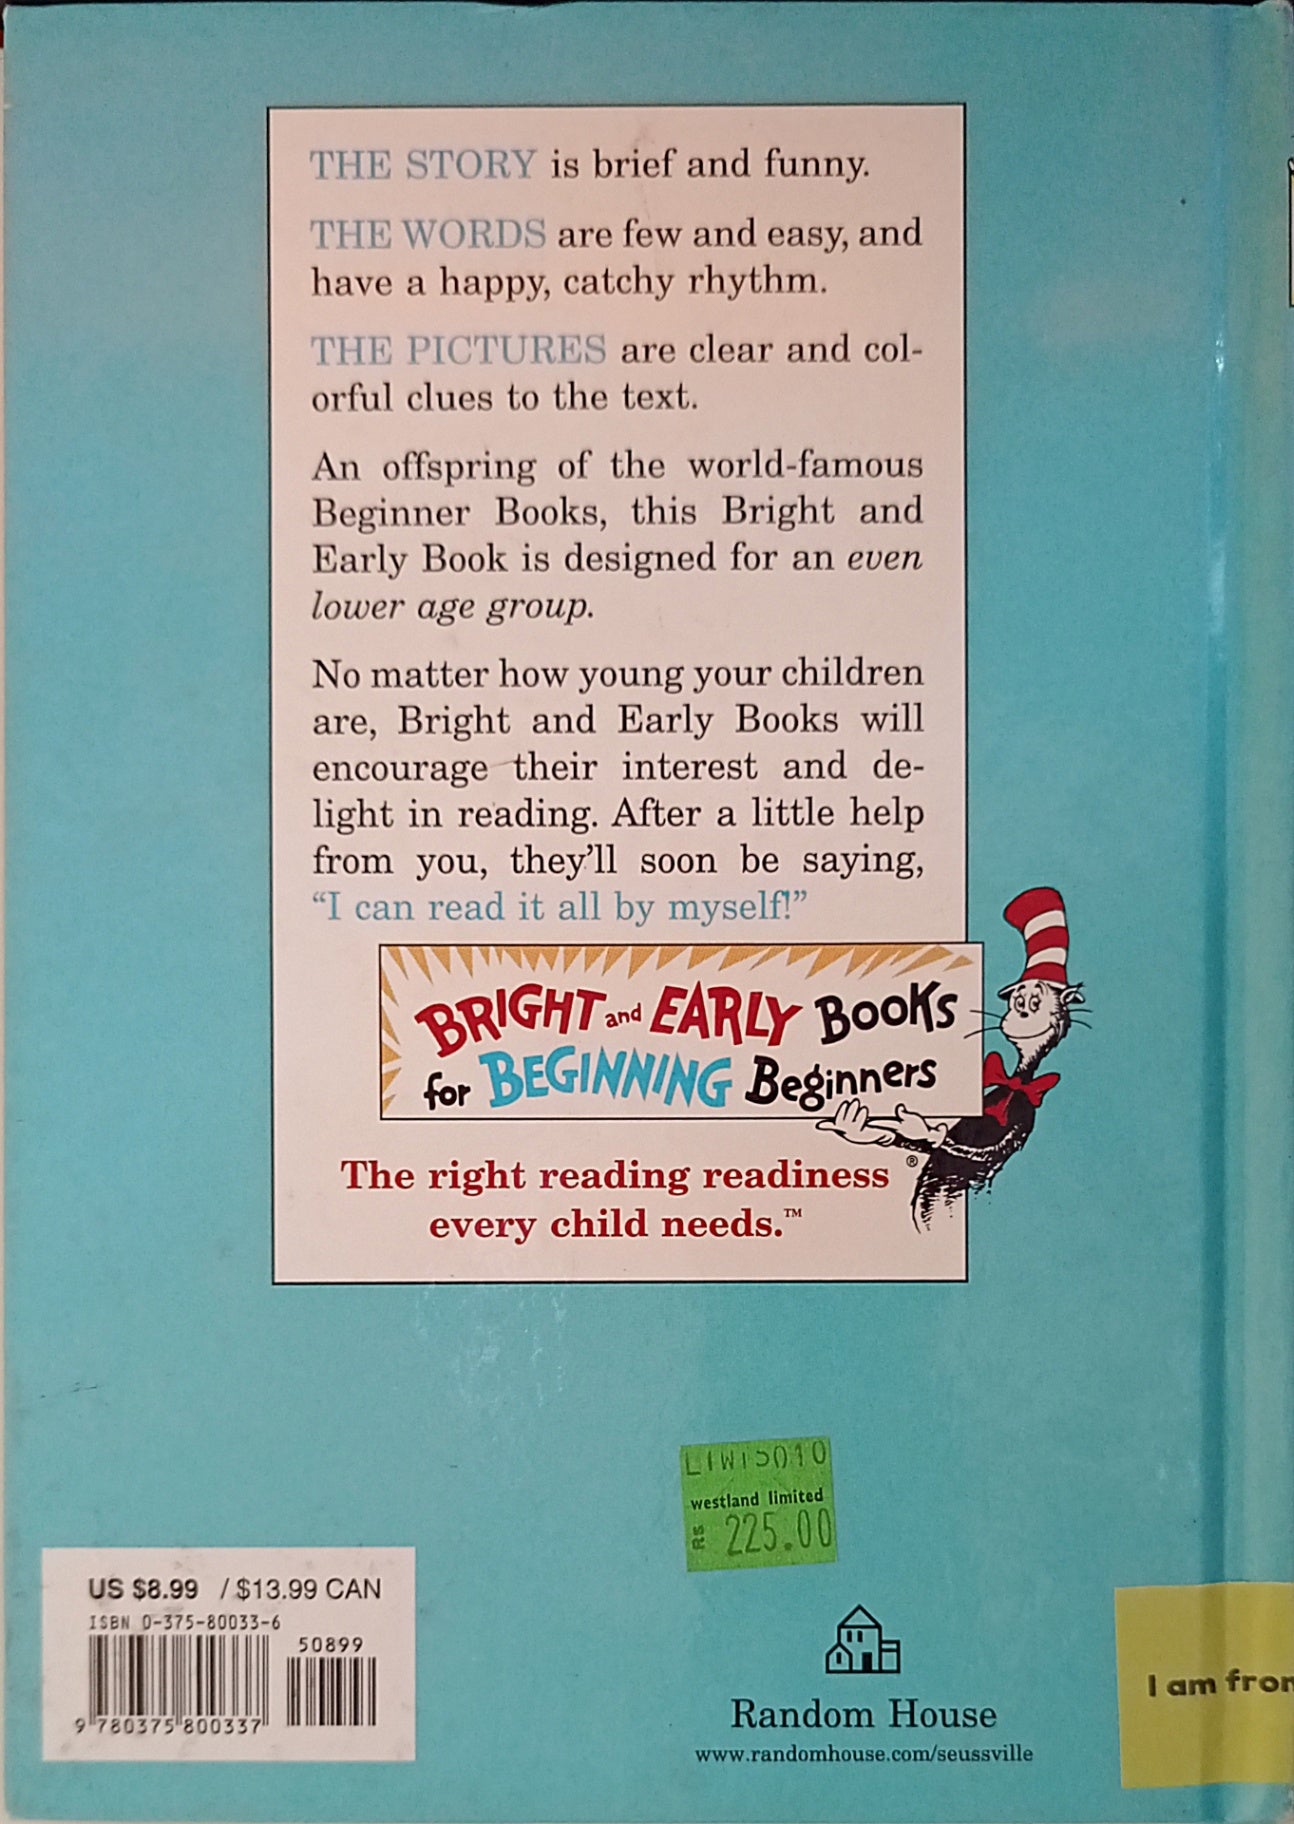 THE STORY is brief and funny.
THE WORDS are few and easy, and
have a happy, catchy rhythm.
THE PICTURES are clear and col-
orful clues to the text.
An offspring of the world-famous
Beginner Books, this Bright and
Early Book is designed for an even
lower age group.
No matter how young your children
are, Bright and Early Books will
encourage their interest and de-
light in reading. After a little help
from you, they'll soon be saying,
“I can read it all by myself!”
BRIGHT and EARLY BOOKS
for BEGINNING Beginners
®
The right reading readiness
every child needs.™
westland limited
RS 225.00
US $8.99 / $13.99 CAN
ISBN 0-375-80033-6
50899
9 780375 800337
Random House
www.randomhouse.com/seussville
I am